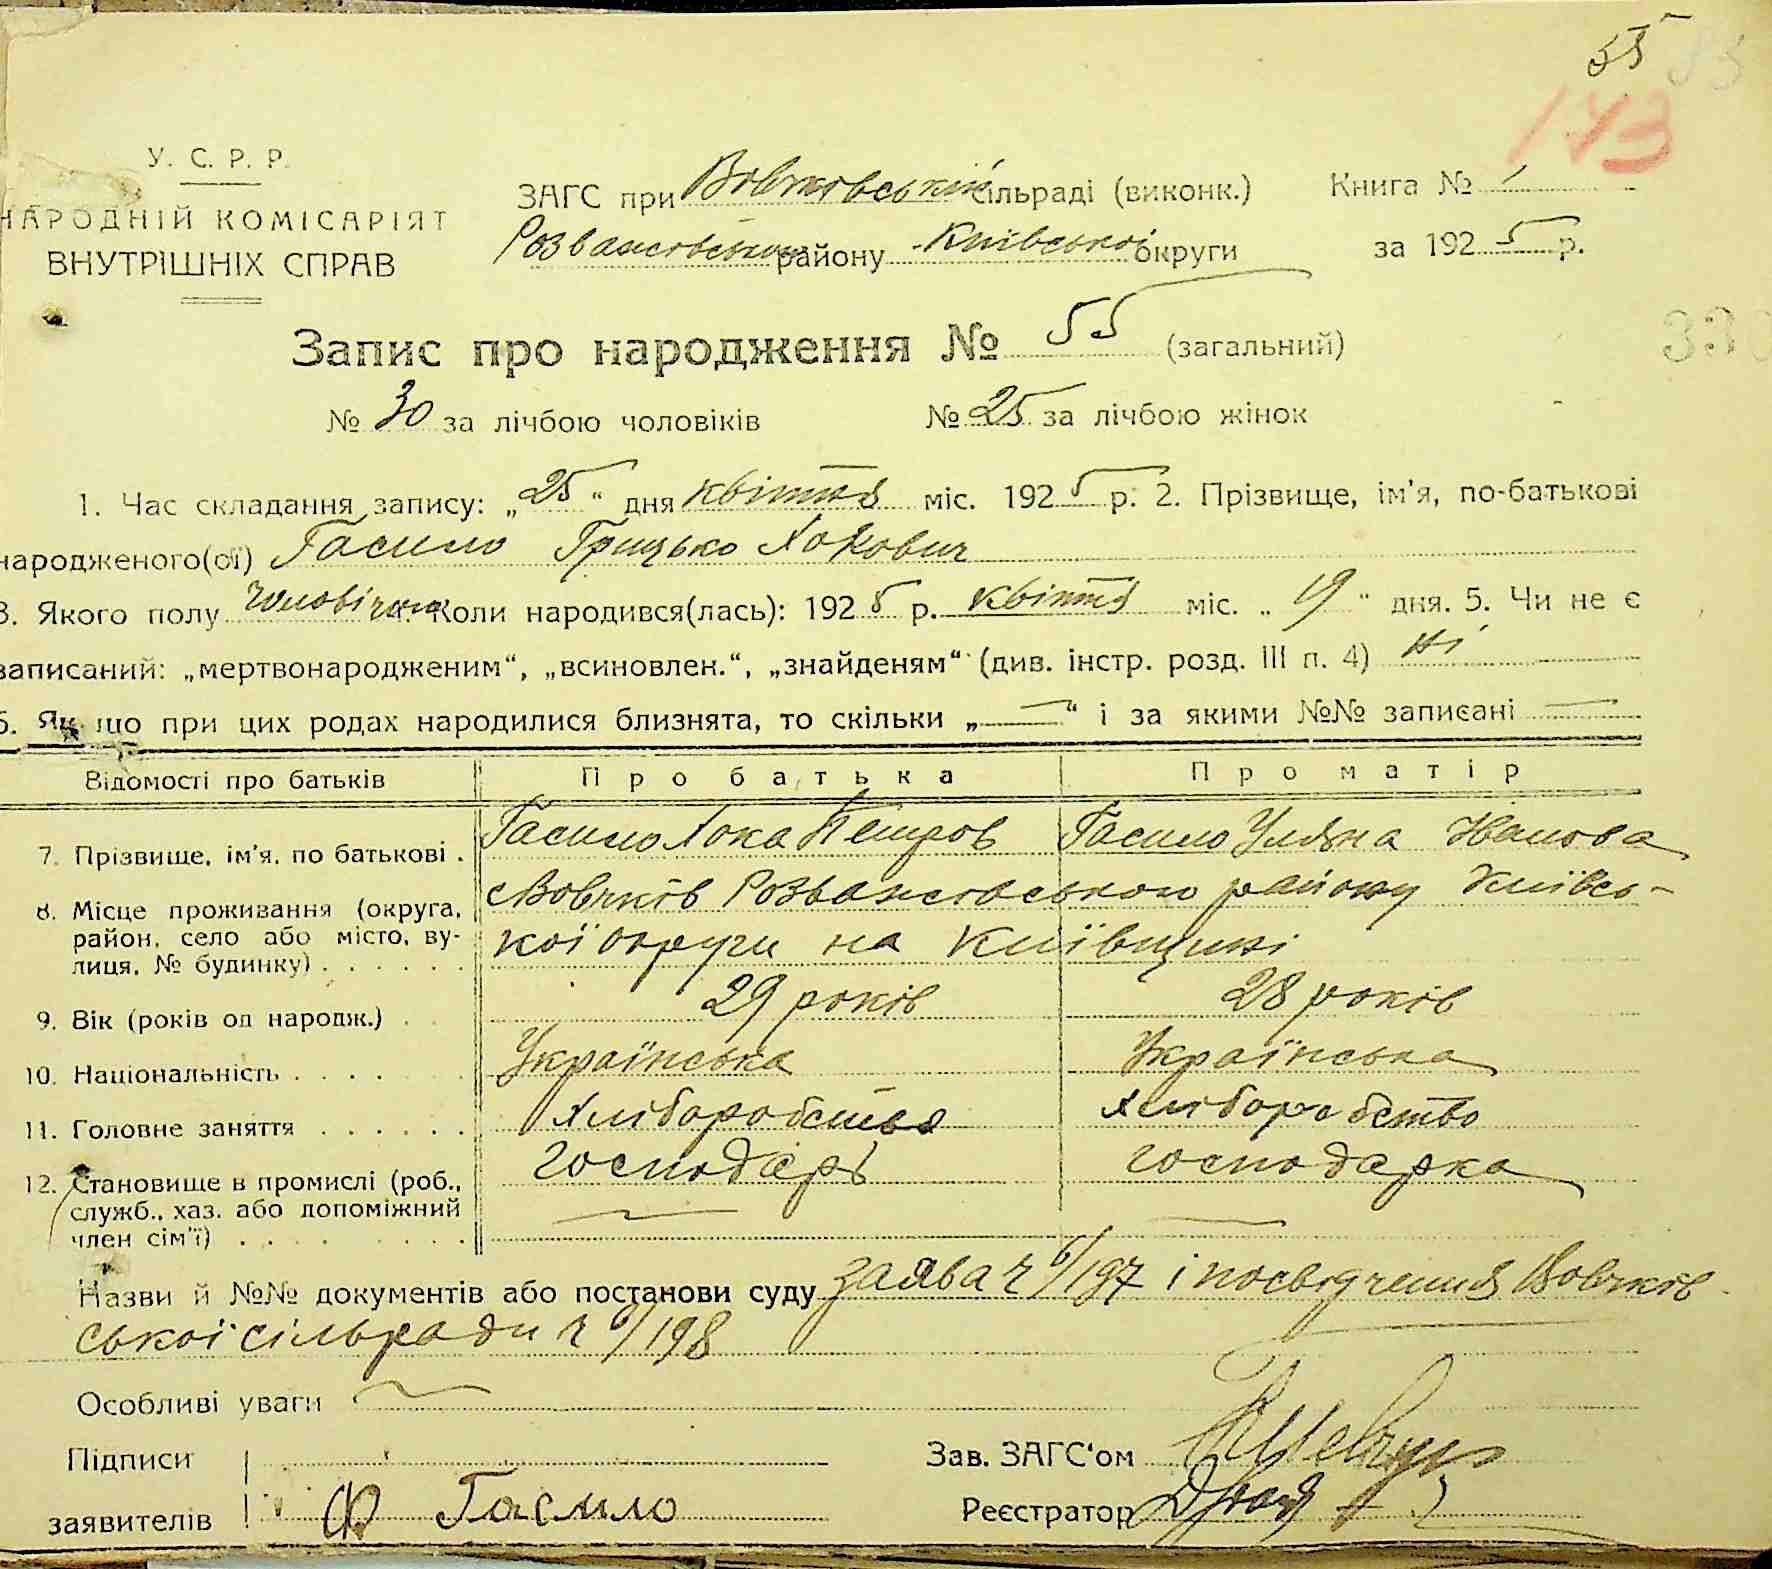 55
173
У. С. Р. Р.
НАРОДНІЙ КОМІСАРІЯТ
ВНУТРІШНІХ СПРАВ
ЗАГС при Вовчковській сільраді (виконк.) Книга № 1
Розважевського району Київської округи за 1925 р.
Запис про народження № 55 (загальний)
330
№ 30 за лічбою чоловіків № 25 за лічбою жінок
1. Час складання запису: „25" дня квітня міс. 1925 р. 2. Прізвище, ім'я, по-батькові
народженого(ої) Гасило Грицько Хокович
3. Якого полу чоловічої 4. Коли народився(лась): 1925 р. квітня міс. „19" дня. 5. Чи не є
записаний: „мертвонародженим", „всиновлен.", „знайденям" (див. інстр. розд. III п. 4) ні
6. Як що при цих родах народилися близнята, то скільки „—" і за якими №№ записані —
Відомості про батьків Про батька Про матір
7. Прізвище, ім'я, по батькові . Гасило Хока Петров Гасило Уляна Иванова
8. Місце проживання (округа, район, село або місто, вулиця, № будинку) . . . . . . с Вовчків Розважевського району Київсь-
кої округи на Київщині
9. Вік (років од народж.) . . 29 років 28 років
10. Національність . . . . . Українська Українська
11. Головне заняття . . . . . . Хліборобство Хліборобство
12. Становище в промислі (роб., служб., хаз. або допоміжний член сім'ї) . . . . . . господарь господарка
Назви й №№ документів або постанови суду заява ч 6/197 і посвідчення Вовчків
ської сільради ч 6/198
Особливі уваги
Підписи
Зав. ЗАГС'ом Шевчук
заявителів Ф Гасило
Реєстратор